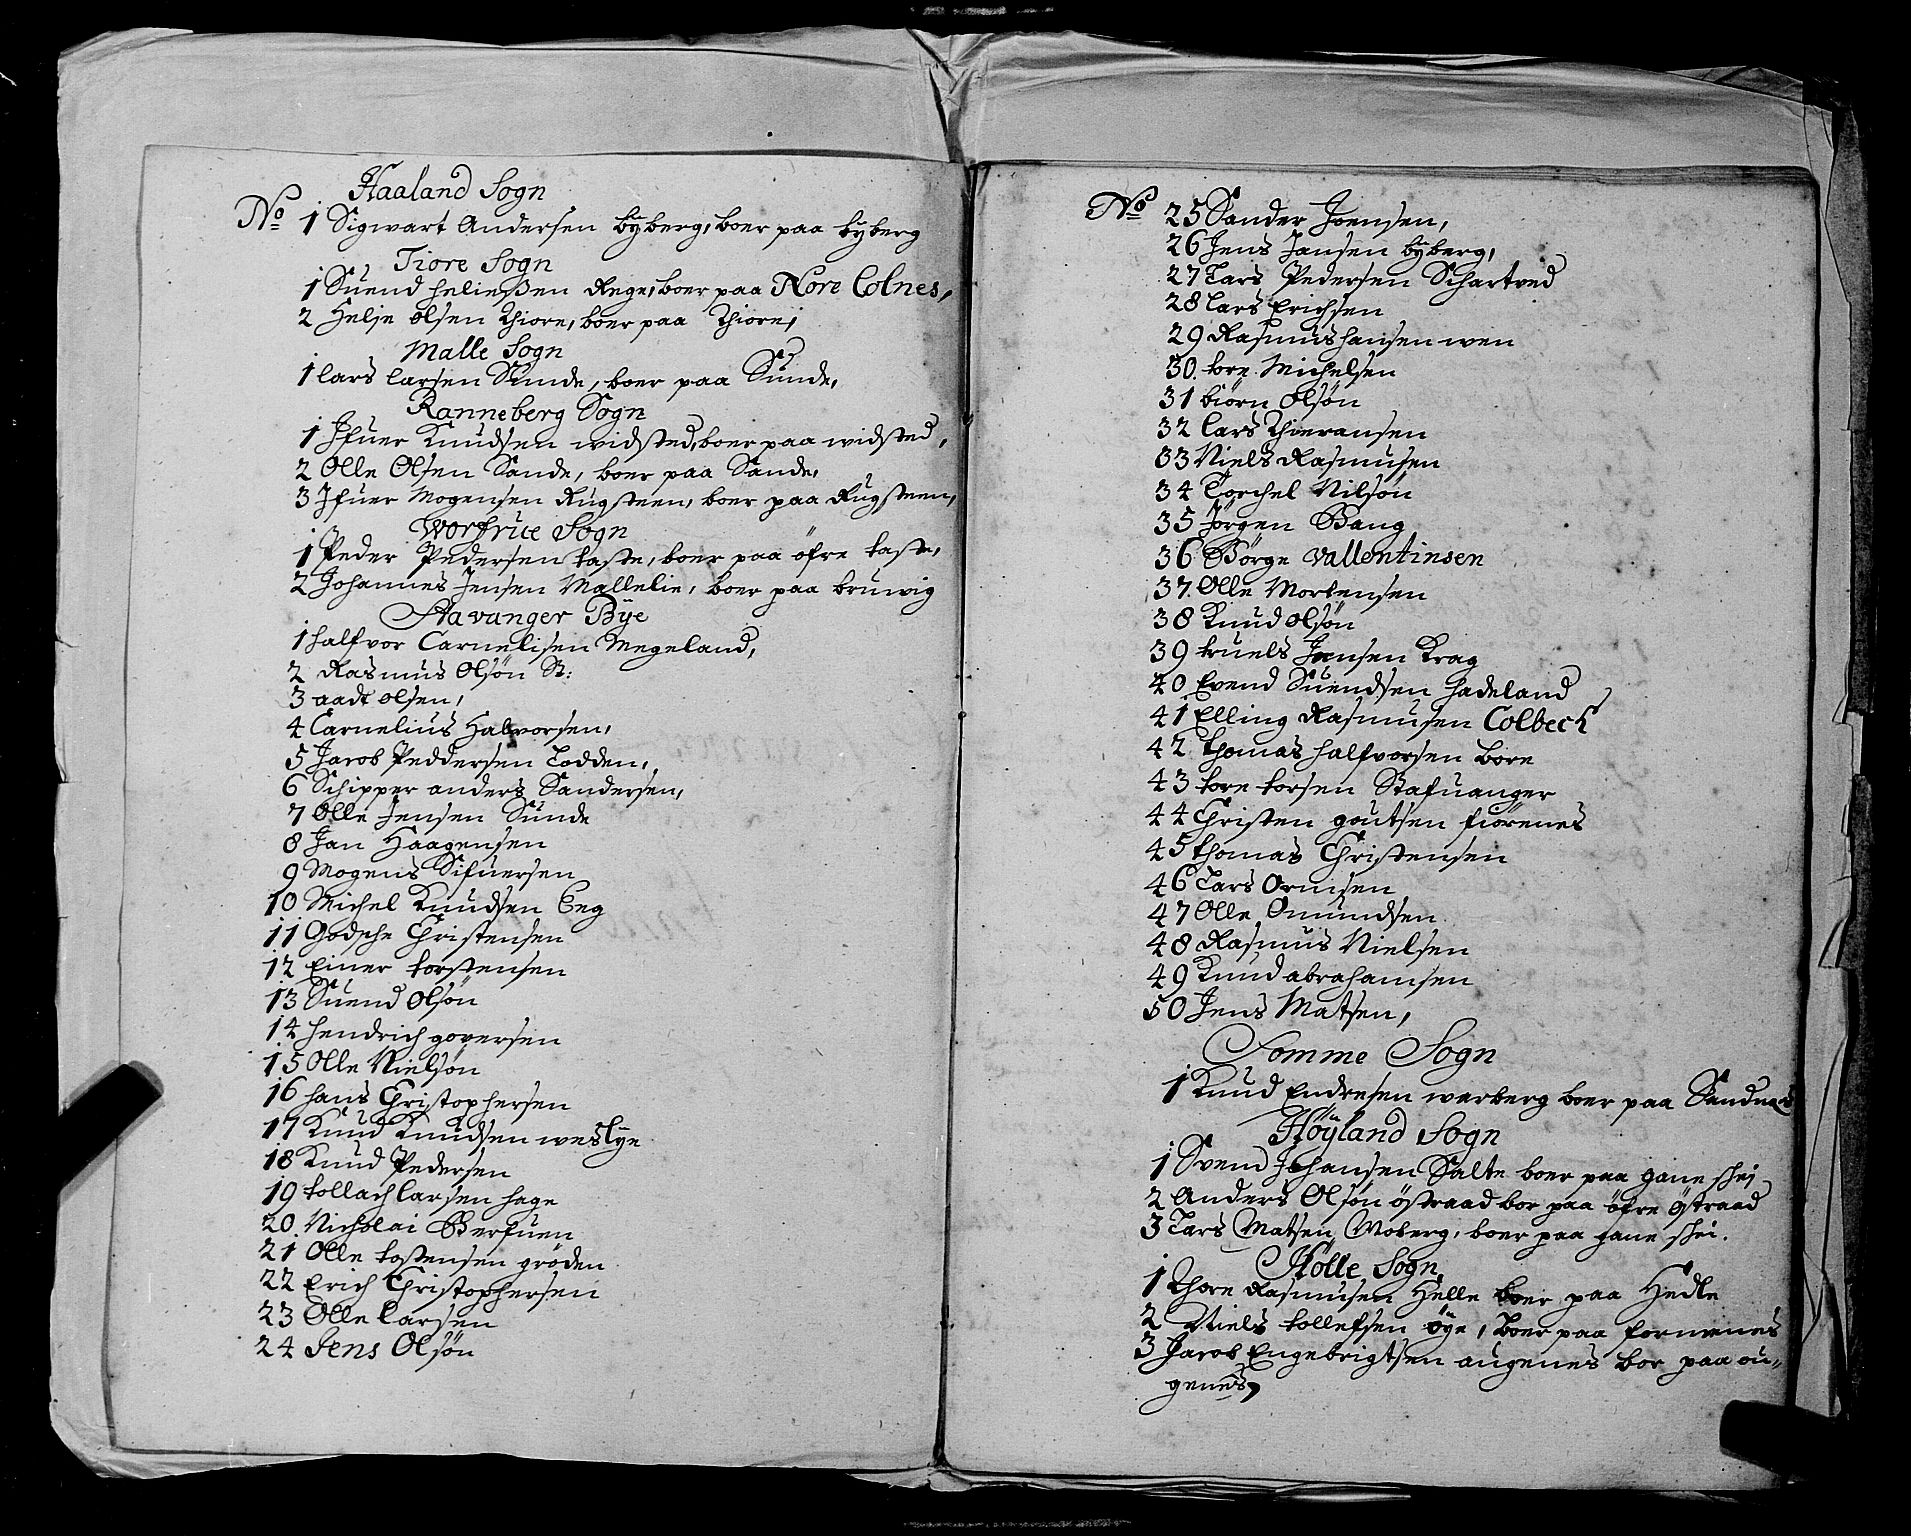 Haaland Sogn
No 1 Sigwart Andersen byberg, boer paa byberg
Tiore Sogn
1 Suend heließen Rege, boer paa Nore Colnes,
2 Helje olsen Thiore, boer paa Thiore,
Malle Sogn
1 lars larsen Sunde, boer paa Sunde,
Ranneberg Sogn
1 Ifuer Knudsen widsted, boer paa widsted,
2 Olle Olsen Sande, boer paa Sande,
3 Ifuer Mogensen Rugsteen, boer paa Rugsteen,
Worfrue Sogn
1 Peder Pedersen taste, boer paa öfre taste,
2 Johannes Jensen Mallelie, boer paa bruwig
Stavanger Bÿe
1 halfvor Carnelisen Megeland,
2 Rasmus Olsön St:
3 aadt olsen,
4 Carnelius Halvorsen,
5 Jacob Peddersen Todden,
6 Schipper anders Sandersen,
7 Olle Jensen Sunde
8 Jan Haagensen
9 Mogens Sifuersen
10 Michel Knudsen Eeg
11 Godsche Christensen
12 Einer torstensen
13 Suend Olsön
14 hendrich goversen
15 Olle Nielsön
16 hans Christophersen
17 Knud Knudsen weslye
18 Knud Pedersen
19 tollach larsen hage
20. Nicholai Berfuen
21 Olle tostensen gröden
22 Erich Christophersen
23 Olle larsen
24 Jens Olsön
No 25 Sander Joensen,
26 Jens Jansen byberg,
27 Lars Pedersen Schartved
28 lars Erichsen
29 Rasmus hansen wen
30. tore Michelsen
31 biörn Olsön
32 lars Thieransen
33 Niels Rasmusen
34 Torchel Nilsön
35 Jörgen Bang
36 Börge Vallentinsen
37. Olle Mortensen
38 Knud olsön
39 truels Jensen Krag
40 Evend Suendsen hadeland
41 Elling Rasmusen Colbeck
42 thomas halfvorsen bore
43 tore torsen Stafuanger
44 Christen goutsen fiörenes
45 thomas Christensen
46 Lars Ormsen
47 Olle Omundsen
48 Rasmus Nielsen
49 Knud abrahamsen
50 Jens Matsen,
Somme Sogn
1 Knud Endresen werberg boer paa Sandnes
Höÿland Sogn
1 Svend Johansen Salte boer paa gane schei
2 Anders Olsön östraad bor paa öfre östraad
3 Lars Matsen Moberg, boer paa gane schei.
Hölle Sogn
1 Thore Rasmusen Helle boer paa Hedle
2 Niels tollefsen öye, boer paa fornenes
3 Jacob Engebrigtsen augenes bor paa ou-
genes,